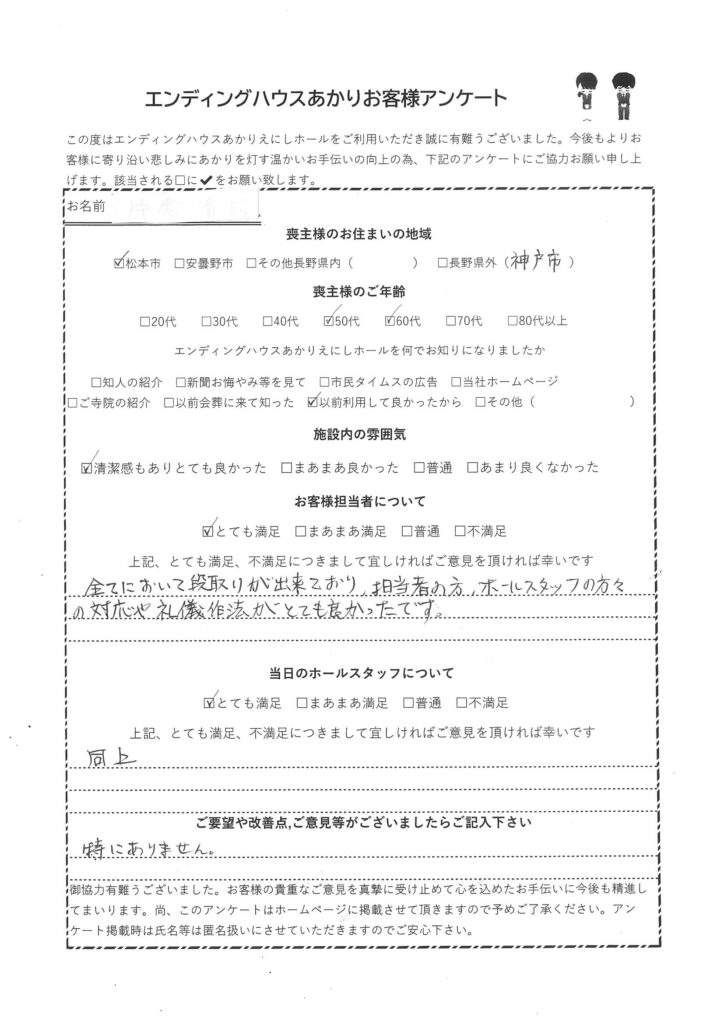 エンディングハウスあかりお客様アンケート
この度はエンディングハウスあかりえにしホールをご利用いただき誠に有難うございました。今後もよりお
客様に寄り沿い悲しみにあかりを灯す温かいお手伝いの向上の為、下記のアンケートにご協力お願い申し上
げます。該当される□に✔をお願い致します。
お名前
喪主様のお住まいの地域
☑松本市 □安曇野市 □その他長野県内（ ） □長野県外（神戸市）
喪主様のご年齢
□20代 □30代 □40代 ☑50代 ☑60代 □70代 □80代以上
エンディングハウスあかりえにしホールを何でお知りになりましたか
□知人の紹介 □新聞お悔やみ等を見て □市民タイムスの広告 □当社ホームページ
□ご寺院の紹介 □以前会葬に来て知った ☑以前利用して良かったから □その他（ ）
施設内の雰囲気
☑清潔感もありとても良かった □まあまあ良かった □普通 □あまり良くなかった
お客様担当者について
☑とても満足 □まあまあ満足 □普通 □不満足
上記、とても満足、不満足につきまして宜しければご意見を頂ければ幸いです
全てにおいて段取りが出来ており、担当者の方、ホールスタッフの方々
の対応や礼儀作法がとても良かったです。
当日のホールスタッフについて
☑とても満足 □まあまあ満足 □普通 □不満足
上記、とても満足、不満足につきまして宜しければご意見を頂ければ幸いです
同上
ご要望や改善点,ご意見等がございましたらご記入下さい
特にありません。
御協力有難うございました。お客様の貴重なご意見を真摯に受け止めて心を込めたお手伝いに今後も精進し
てまいります。尚、このアンケートはホームページに掲載させて頂きますので予めご了承ください。アン
ケート掲載時は氏名等は匿名扱いにさせていただきますのでご安心下さい。